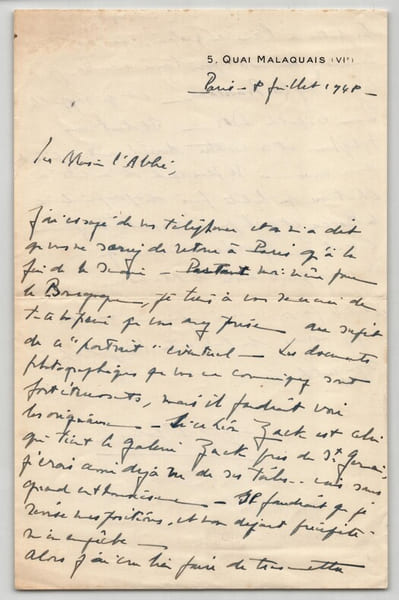 5, QUAI MALAQUAIS (VIe)
Paris - 8 Juillet 1948 -
l'Abbé,
J'ai essayé de vous téléphoner et on m'a dit
que vous ne seriez de retour à Paris qu'à la
fin de la semaine - Partant moi-même pour
la Bourgogne, je tiens à vous remercier de
toute la peine que vous avez prise au sujet
de ce "portrait" éventuel - Les documents
photographiques que vous me communiquez sont
fort intéressants, mais il faudrait voir
les originaux - Si ce Léon Zack est celui
qui tient la galerie Zack près de St Germain,
je crois avoir déjà vu de ses toiles.. mais sans
grand enthousiasme - Il faudrait que je
mes positions, et mon départ
mon enquête -
Alors j'ai cru bien faire de